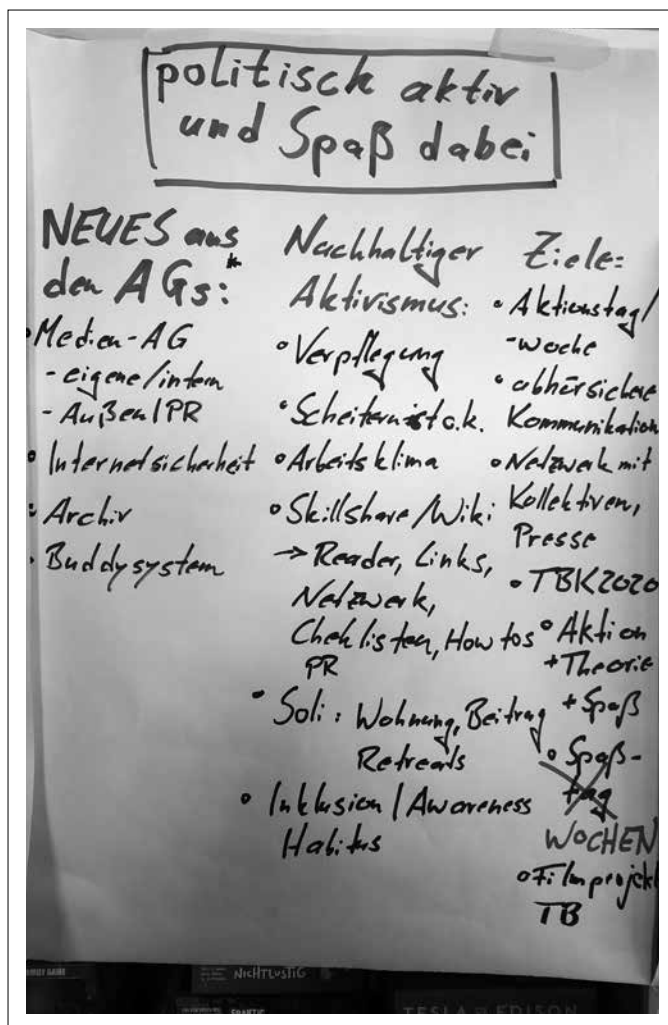 politisch aktiv
und Spaß dabei
NEUES aus
den AGs:
• Medien-AG
- eigene/intern
- Außen/PR
• Internetsicherheit
• Archiv
• Buddysystem
Nachhaltiger
Aktivismus:
• Verpflegung
• Scheitern ist o.k.
• Arbeitsklima
• Skillshare/Wiki
→ Reader, Links,
Netzwerk,
Cheklisten, How tos
PR
• Soli: Wohnung, Beitrag
Retreats
• Inklusion/Awareness
Habitus
Ziele:
• Aktionstag/
-woche
• abhörsichere
Kommunikation
• Netzwerk mit
Kollektiven,
Presse
• TBK2020
• Aktion
+Theorie
+Spaß
• Spaß-
tag
WOCHEN
• Filmprojekt
TB
NICHTLUSTIG
TESLA EDISON